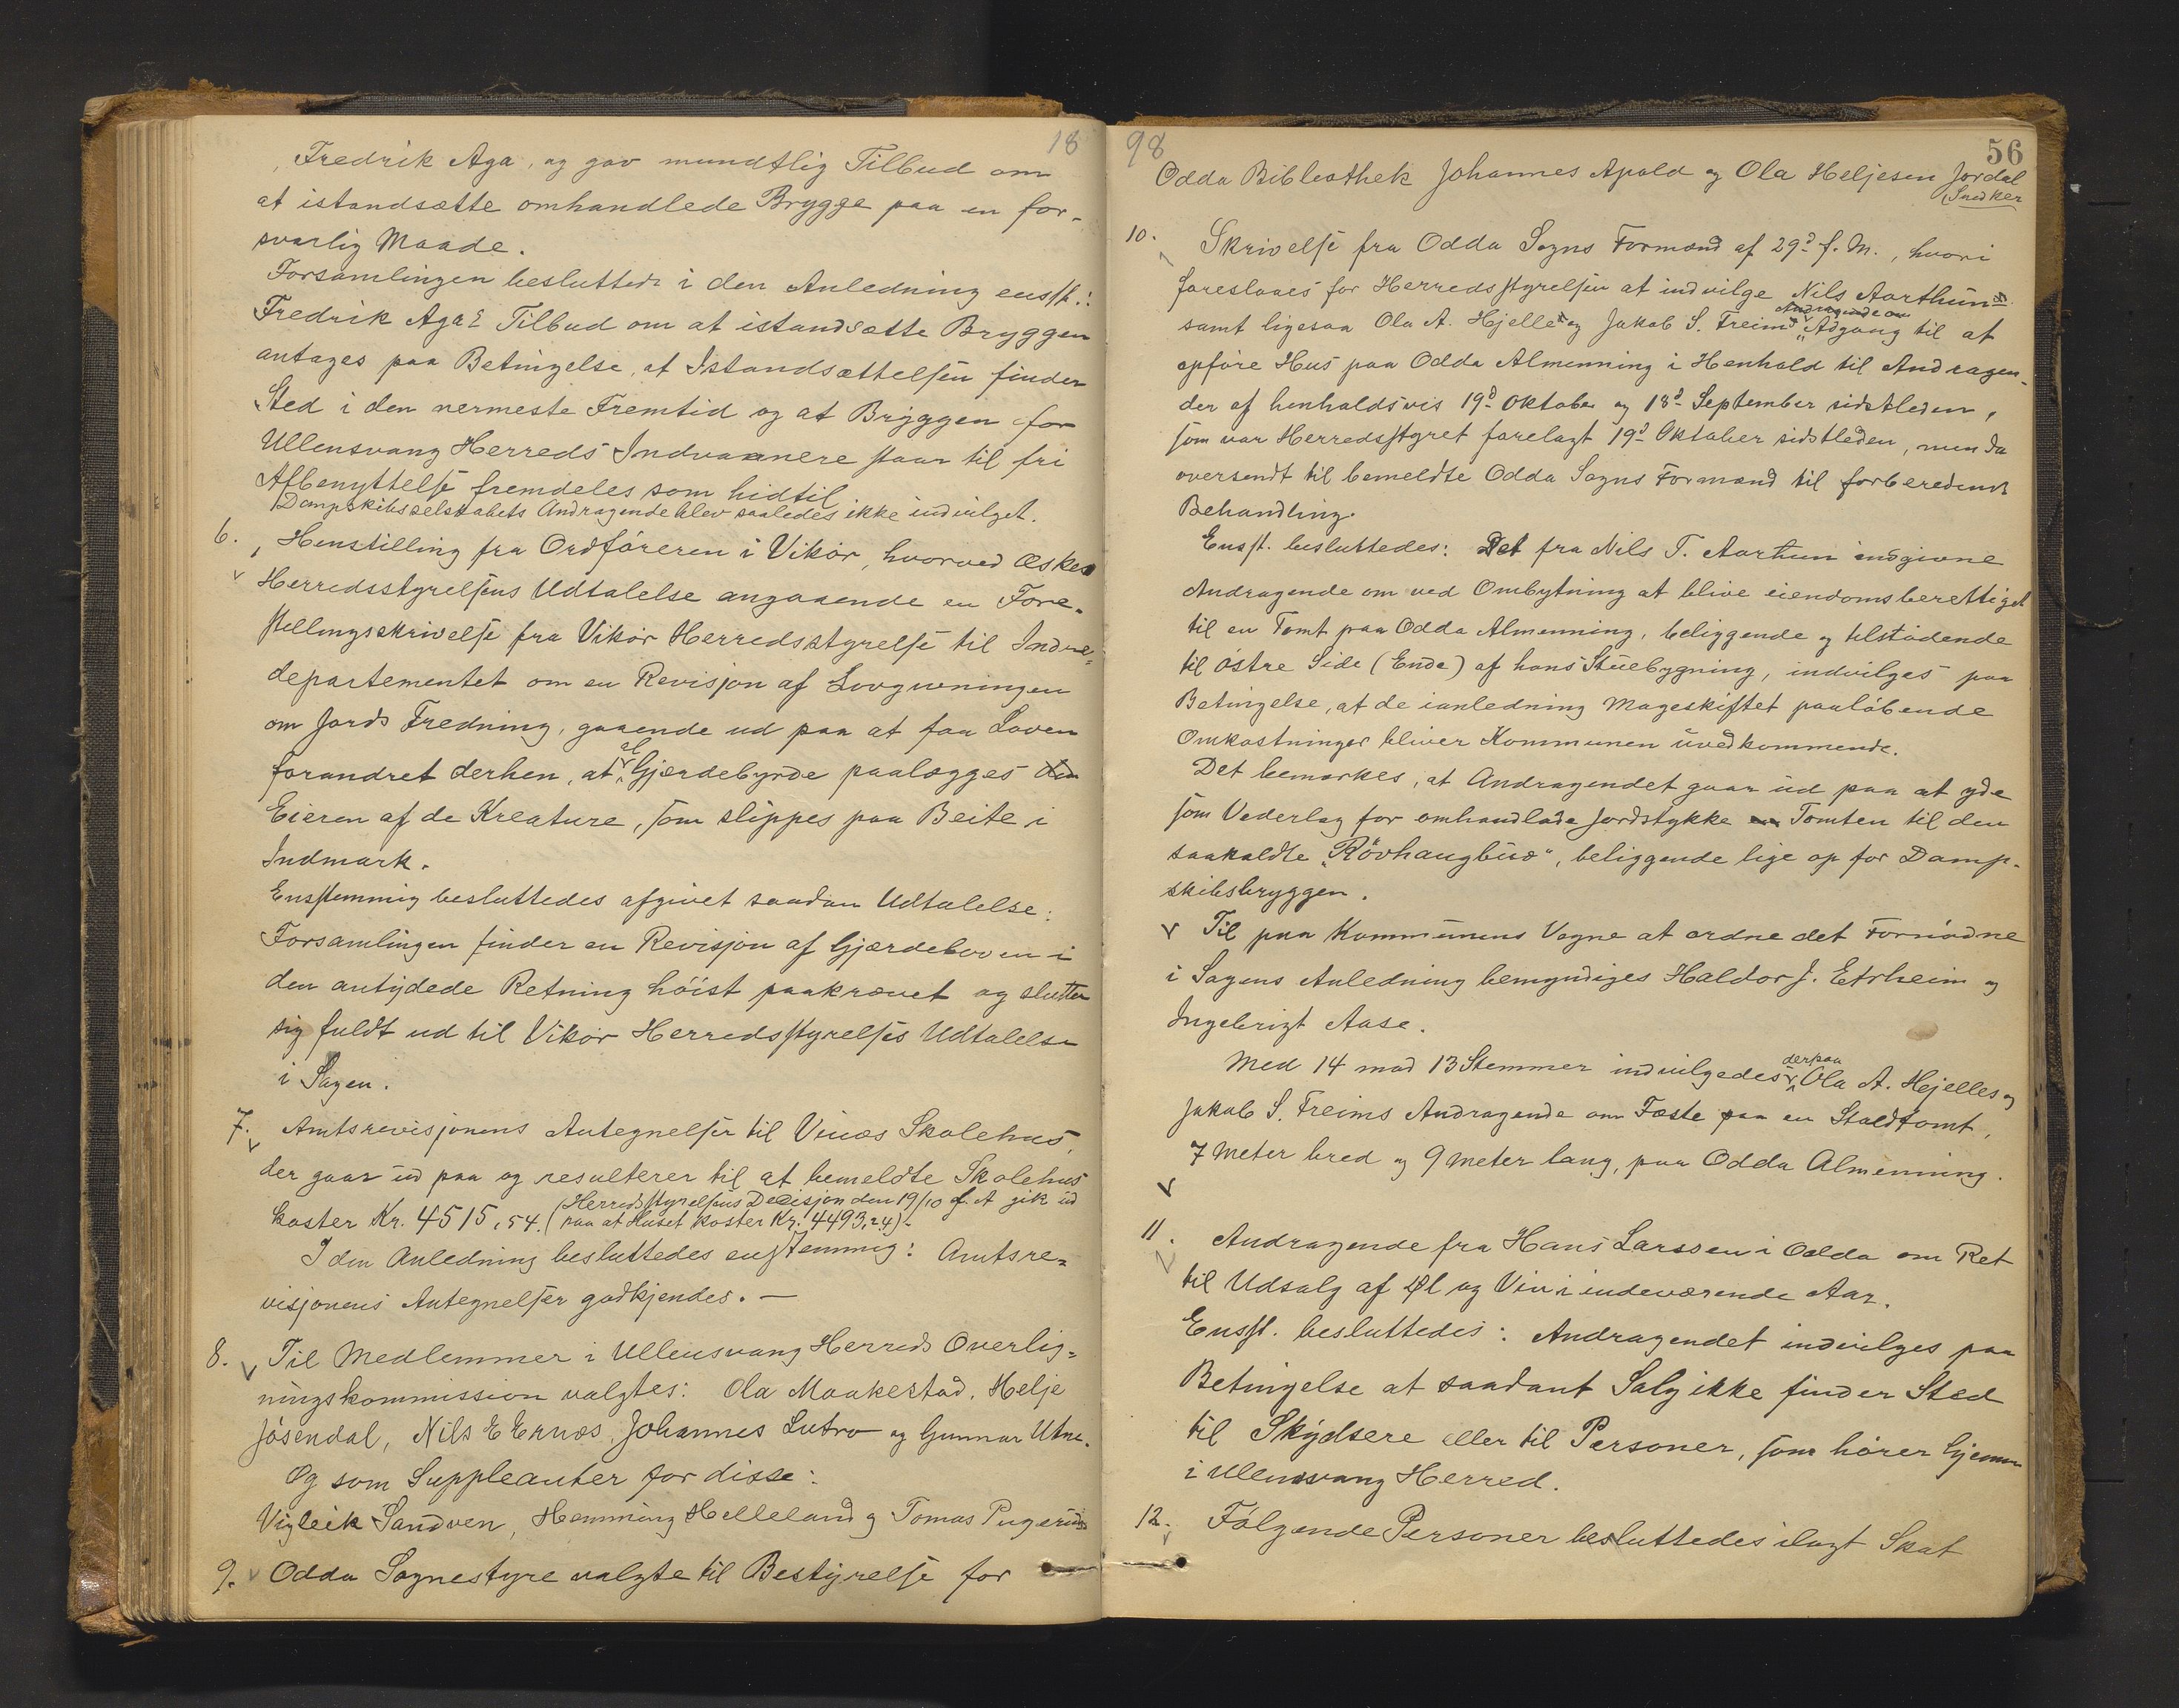 18
Fredrik Aga, og gav mundtlig Tilbud om
at istandsætte omhandlede Brygge paa en for-
svarlig Maade.
Forsamlingen besluttede i den Anledning eenst.:
Fredrik Aga's Tilbud om at istandsætte Bryggen
antages paa Betingelse, at Istandsættelsen finder
Sted i den nermeste Fremtid og at Bryggen for
Ullensvang Herreds Indvaanere staar til fri
Afbenyttelse fremdeles som hidtil
Dampskibsselskabets Andragende blev saaledes ikke indvilget.
6. Henstilling fra Ordføreren i Vikør, hvorved Æskes
Herredsstyrelsens Udtalelse angaaende en Fore-
stillingsskrivelse fra Vikør Herredsstyrelse til Indre-
departementet om en Revisjon af Lovgivningen
om Jords Fredning, gaaende ud paa at faa Loven
forandret derhen, at al Gjærdebyrde paalægges den
Eieren af de Kreature, som slippes paa Beite i
Indmark.
Enstemmig besluttedes afgivet saadan Udtalelse:
Forsamlingen finder en Revisjon af Gjærdeloven i
den antydede Retning høist paakrævet og slutter
sig fuldt ud til Vikør Herredsstyrelses Udtalelse
i Sagen.
7. Amtsrevisjonens Antegnelser til Vinæs Skolehus,
der gaar ud paa og resulterer til at bemeldte Skolehus
koster Kr. 4515,54. (Herredsstyrelsens Decisjon den 19/10 f. A gik ud
paa at Huset koster Kr. 4493,24).
I den Anledning besluttedes enstemmig: Amtsre-
visjonens Antegnelser godkjendes. —
8. Til Medlemmer i Ullensvang Herreds Overlig-
ningskommission valgtes: Ola Maakestad, Helje
Jösendal, Nils E Ernæs, Johannes Lutro og Gunnar Utne.
Og som Suppleanter for disse:
Vigleik Sandven, Hemming Helleland og Tomas Pugerud
9. Odda Sognestyre valgte til Bestyrelse for
98
56
Odda Bibliothek Johannes Apold og Ola Heljesen Jordal
Snedker
10. Skrivelse fra Odda Sogns Formænd af 29d f. M., hvori
foreslaaes for Herredsstyrelsen at indvilge Nils Aarthuns
Andragende om
samt ligesaa Ola A. Hjelles og Jakob S. Freims Adgang til at
opføre Hus paa Odda Almenning i Henhold til Andragen-
der af henholdsvis 19d Oktober og 18d September sidstleden,
som var Herredsstyret forelagt 19d Oktober sidstleden, men da
oversendt til bemeldte Odda Sogns Formænd til forberedende
Behandling.
Enst. besluttedes: Det fra Nils T. Aartun indgivne
Andragende om ved Ombytning at blive eiendomsberettiget
til en Tomt paa Odda Almenning, beliggende og tilstødende
til østre Side (Ende) af hans Stuebygning, indvilges paa
Betingelse, at de ianledning Mageskiftet paaløbende
Omkostninger bliver Kommunen uvedkommende.
Det bemærkes, at Andragendet gaar ud paa at yde
som Vederlag for omhandlede Jordstykke Tomten til den
saakaldte "Røvhaugbuo", beliggende lige op for Damp-
skibsbryggen.
Til paa Kommunens Vegne at ordne det Fornødne
i Sagens Anledning bemyndiges Haldor J. Eitrheim og
Ingebrigt Aase.
Med 14 mod 13 Stemmer indvilgedes derpaa Ola A. Hjelles og
Jakob S. Freims Andragende om Fæste paa en Staldtomt,
7 Meter bred og 9 Meter lang, paa Odda Almenning.
11. Andragende fra Hans Larssen i Odda om Ret
til Udsalg af Øl og Vin i indeværende Aar.
Enst. besluttedes: Andragendet indvilges paa
Betingelse at saadant Salg ikke finder Sted
til Skydsere eller til Personer, som hører hjemme
i Ullensvang Herred.
12. Følgende Personer besluttedes ilagt Skat